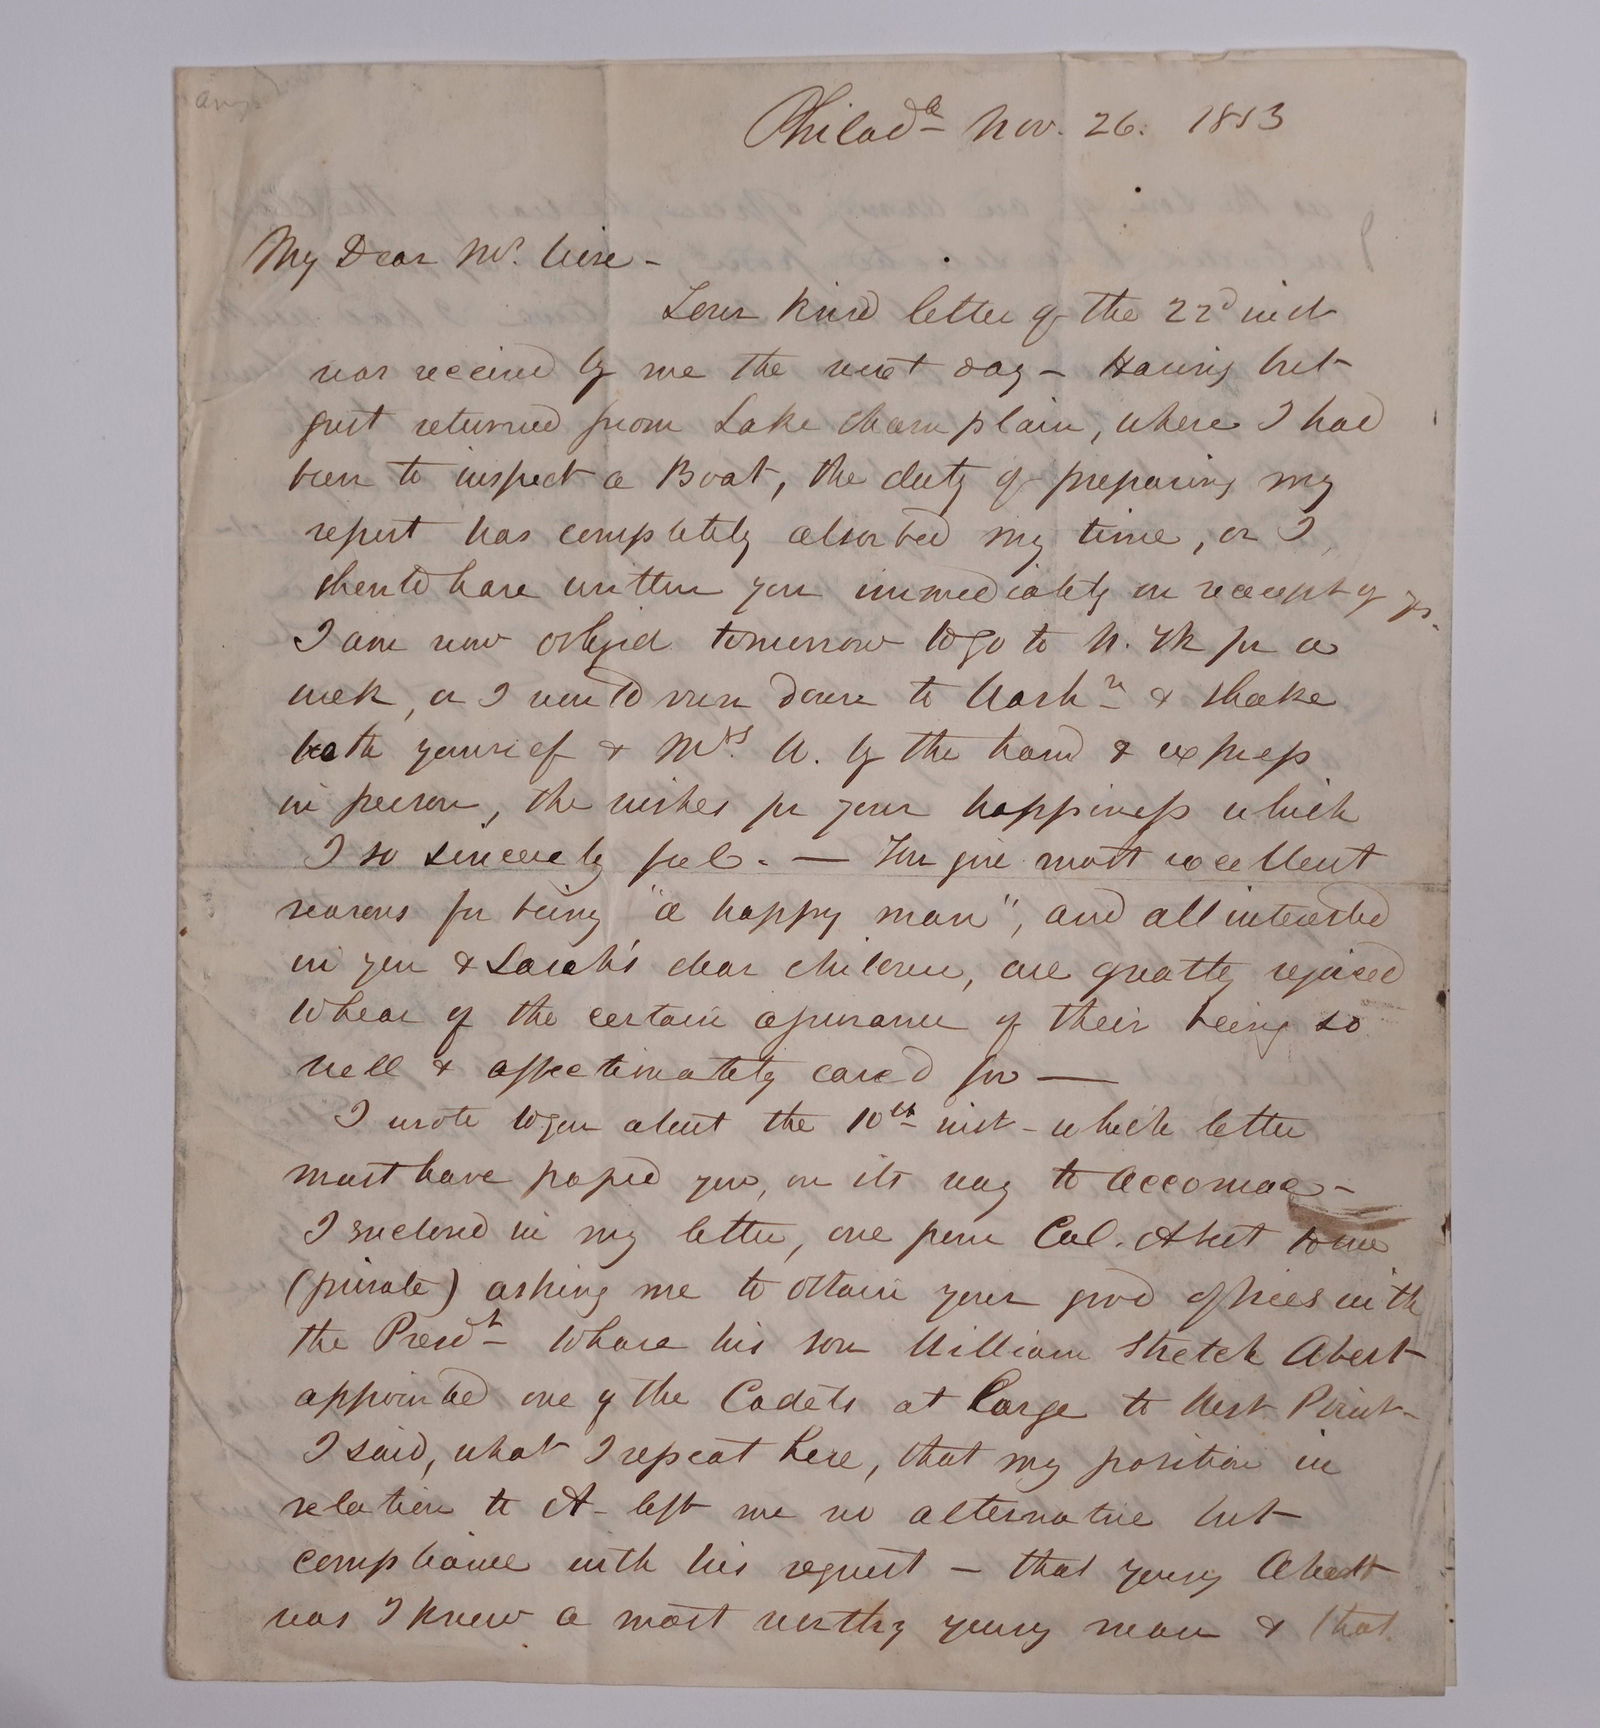 Philad^a Nov. 26. 1853
My Dear Mr. Wise -
Your kind letter of the 22d inst
was received by me the next day - Having but
just returned from Lake Champlain, where I had
been to inspect a Boat, the duty of preparing my
report has completely absorbed my time, or I
should have written you immediately on receipt of yrs.
I am now obliged tomorrow to go to N. Yk for a
week, or I would run down to Washn & shake
both yourself & Mrs. W. by the hand & express
in person, the wishes for your happiness which
I so sincerely feel. — You give most excellent
reasons for being "a happy man", and all interested
in you & Sarah's dear children, are greatly rejoiced
to hear of the certain assurance of their being so
well & affectionately cared for —
I wrote to you about the 10th inst - which letter
must have passed you, on its way to Accomac -
I enclosed in my letter, one from Col. Abert to me
(private) asking me to obtain your good offices with
the Presdt - to have his son William Stretch Abert
appointed one of the Cadets at Large to West Point -
I said, what I repeat here, that my position in
relation to A - left me no alternative but
compliance with his request - that young Abert
was I knew a most worthy young man & that